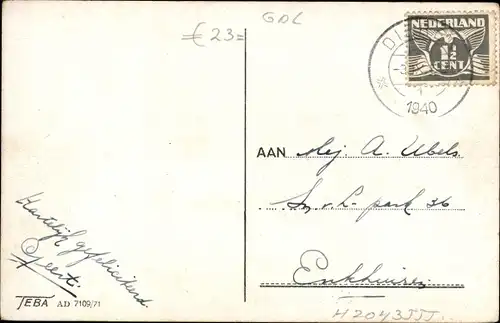 € 23=
GDL
NEDERLAND
1½
CENT
1940
AAN Mej. A. Ubels
park 36
Enkhuizen
Hartelijk gefeliciteerd
Geert.
TEBA AD 7109/71